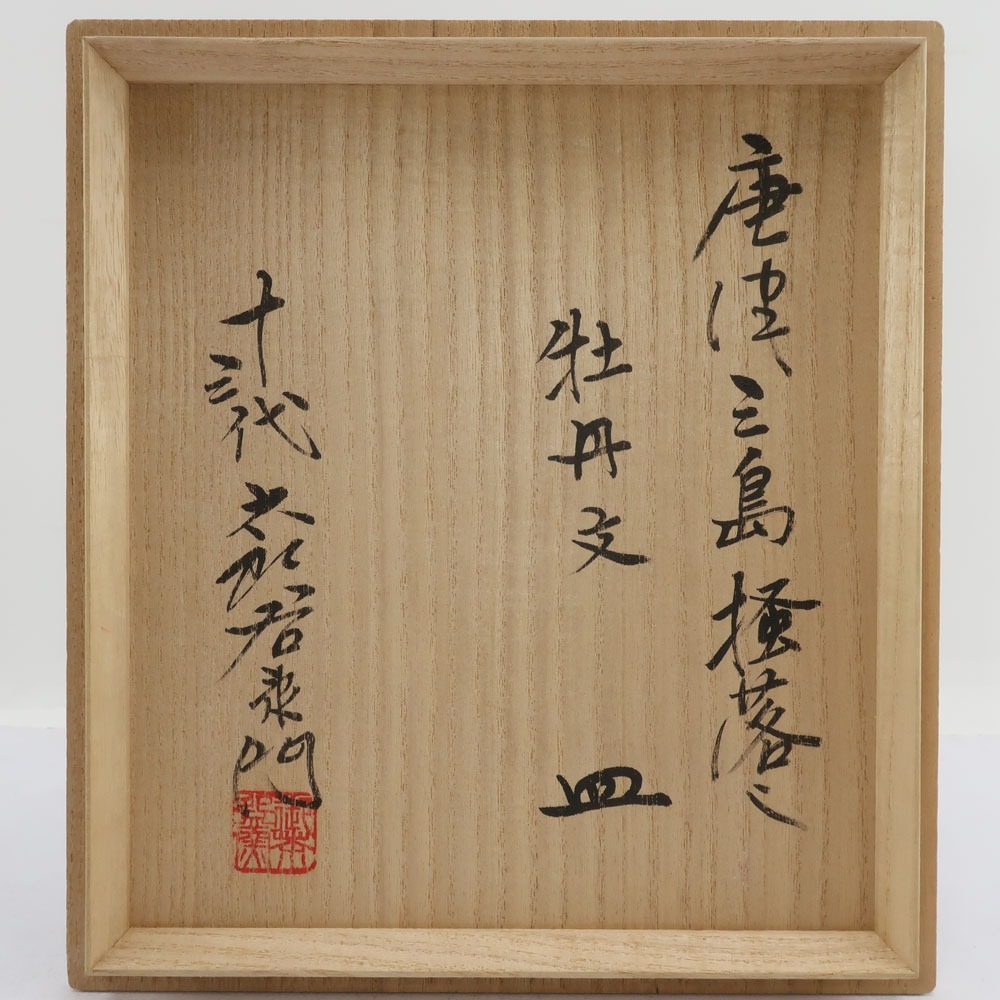 唐津三島掻落し
牡丹文 皿
十三代 太郎右衛門